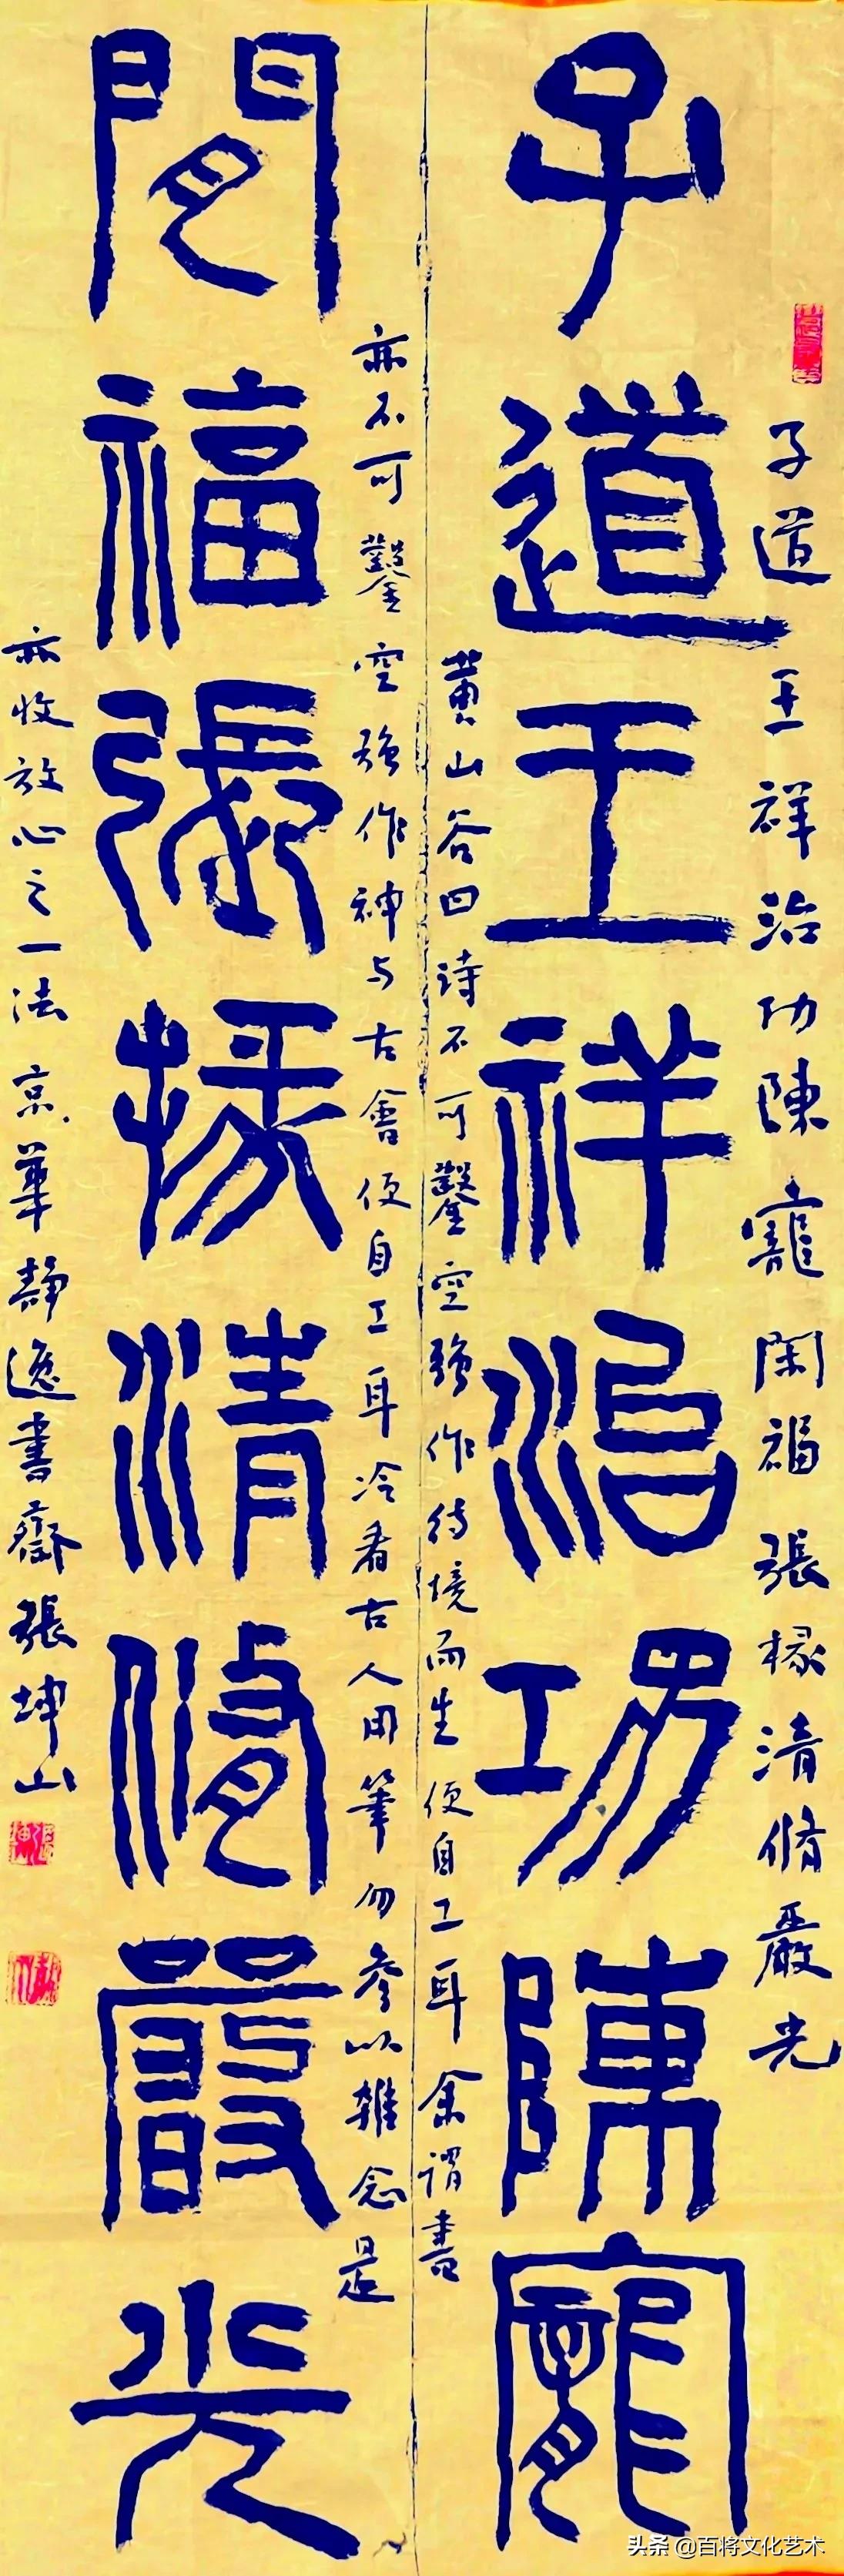 子道王祥治功陳寵閑福張椽清脩嚴光
子道王祥治功陳寵
黄山谷曰詩不可鑿空強作待境而生便自工耳余謂書
亦不可鑿空強作神与古會便自工耳冷看古人用筆勿參以雜念是
閒福張掾清脩嚴光
亦收放心之一法京華靜逸書齋張坤山
头条 @百将文化艺术